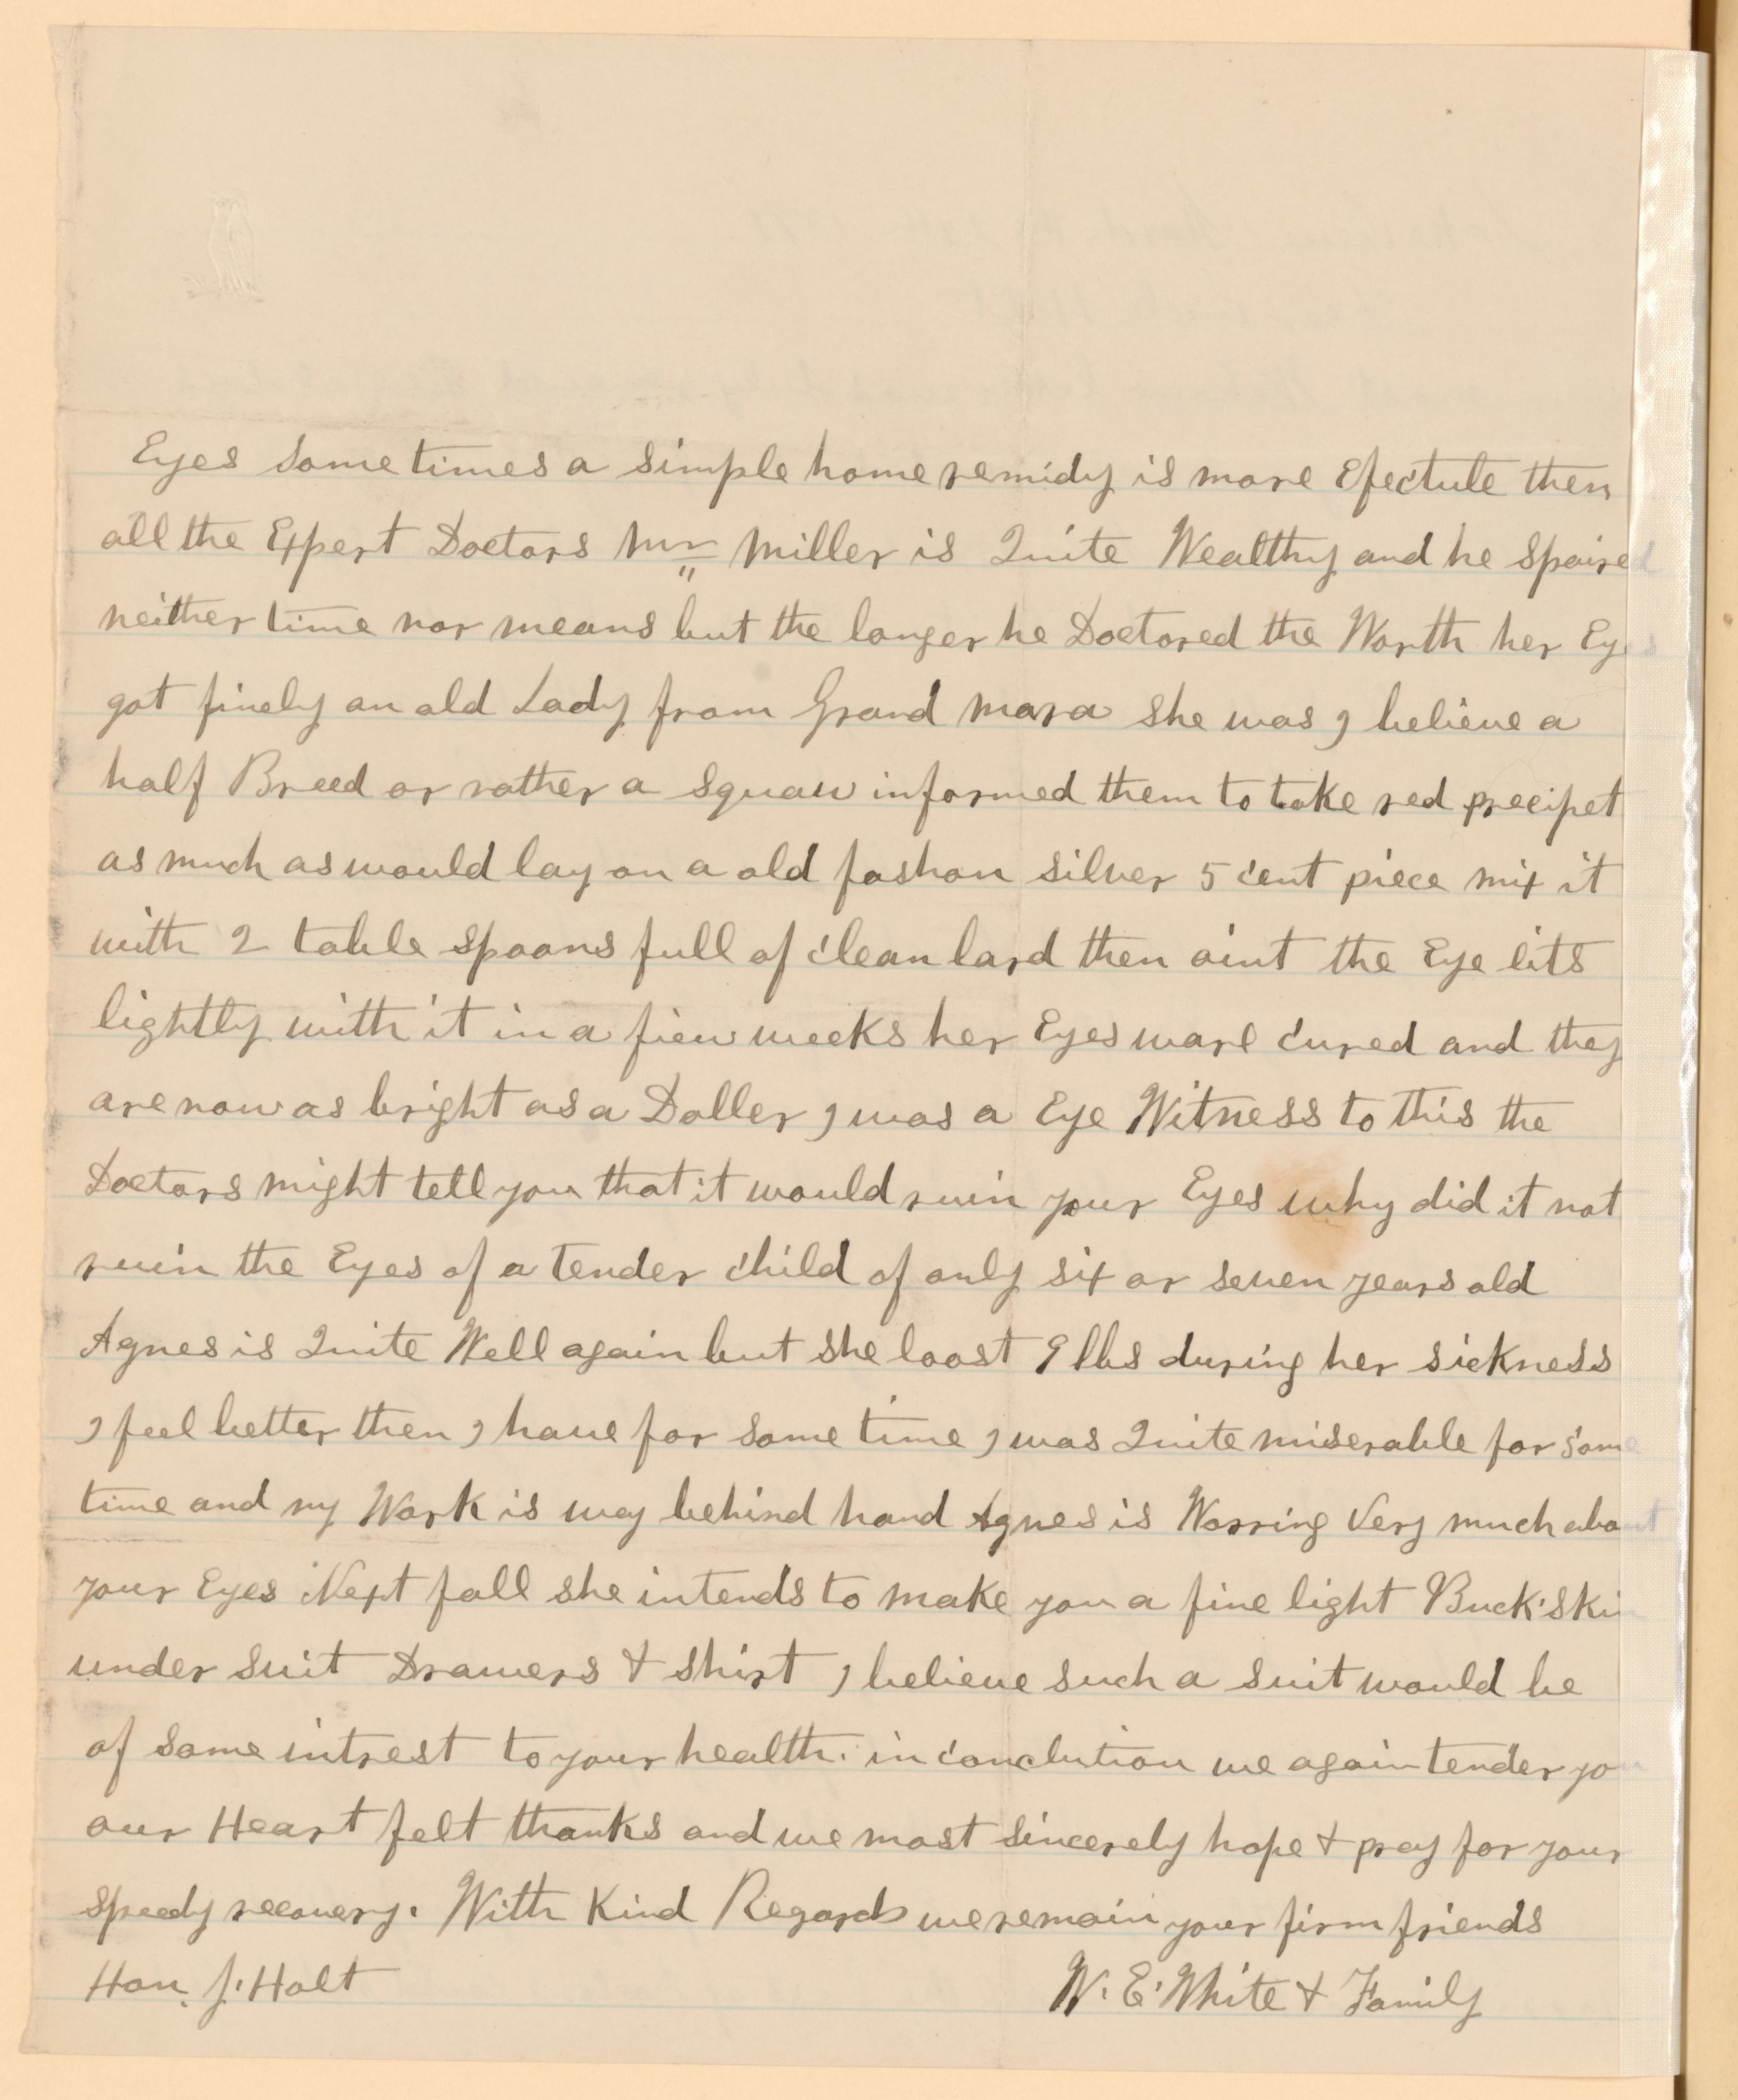 Eyes Sometimes a simple home remidy is more Efectule then
all the Expert Doctors Mr Miller is Quite Wealthy and he Spaired
neither time nor means but the longer he Doctored the Worth her Eyes
got finely an old Lady from Grand mara She was I believe a
half Breed or rather a Squaw informed them to take red precipet
as much as would lay on a old fashon silver 5 cent piece mix it
with 2 table spoons full of clean lard then oint the Eye lits
lightly with it in a fiew weeks her Eyes ware cured and they
are now as bright as a Doller I was a Eye Witness to this the
Doctors might tell you that it would ruin your Eyes why did it not
ruin the Eyes of a tender child of only six or seven years old
Agnes is Quite Well again but she loost 9 lbs during her sickness
I feel better then I have for some time I was Quite miserable for some
time and my Work is way behind hand Agnes is Worring Very much about
your Eyes Next fall she intends to make you a fine light Buck skin
under suit Drawers & shirt I believe such a suit would be
of some intrest to your health. in conclution we again tender you
our Heart felt thanks and we most sincerely hope & pray for your
speedy recovery. With Kind Regards we remain your firm friends
Hon. J. Holt W. E. White & Family